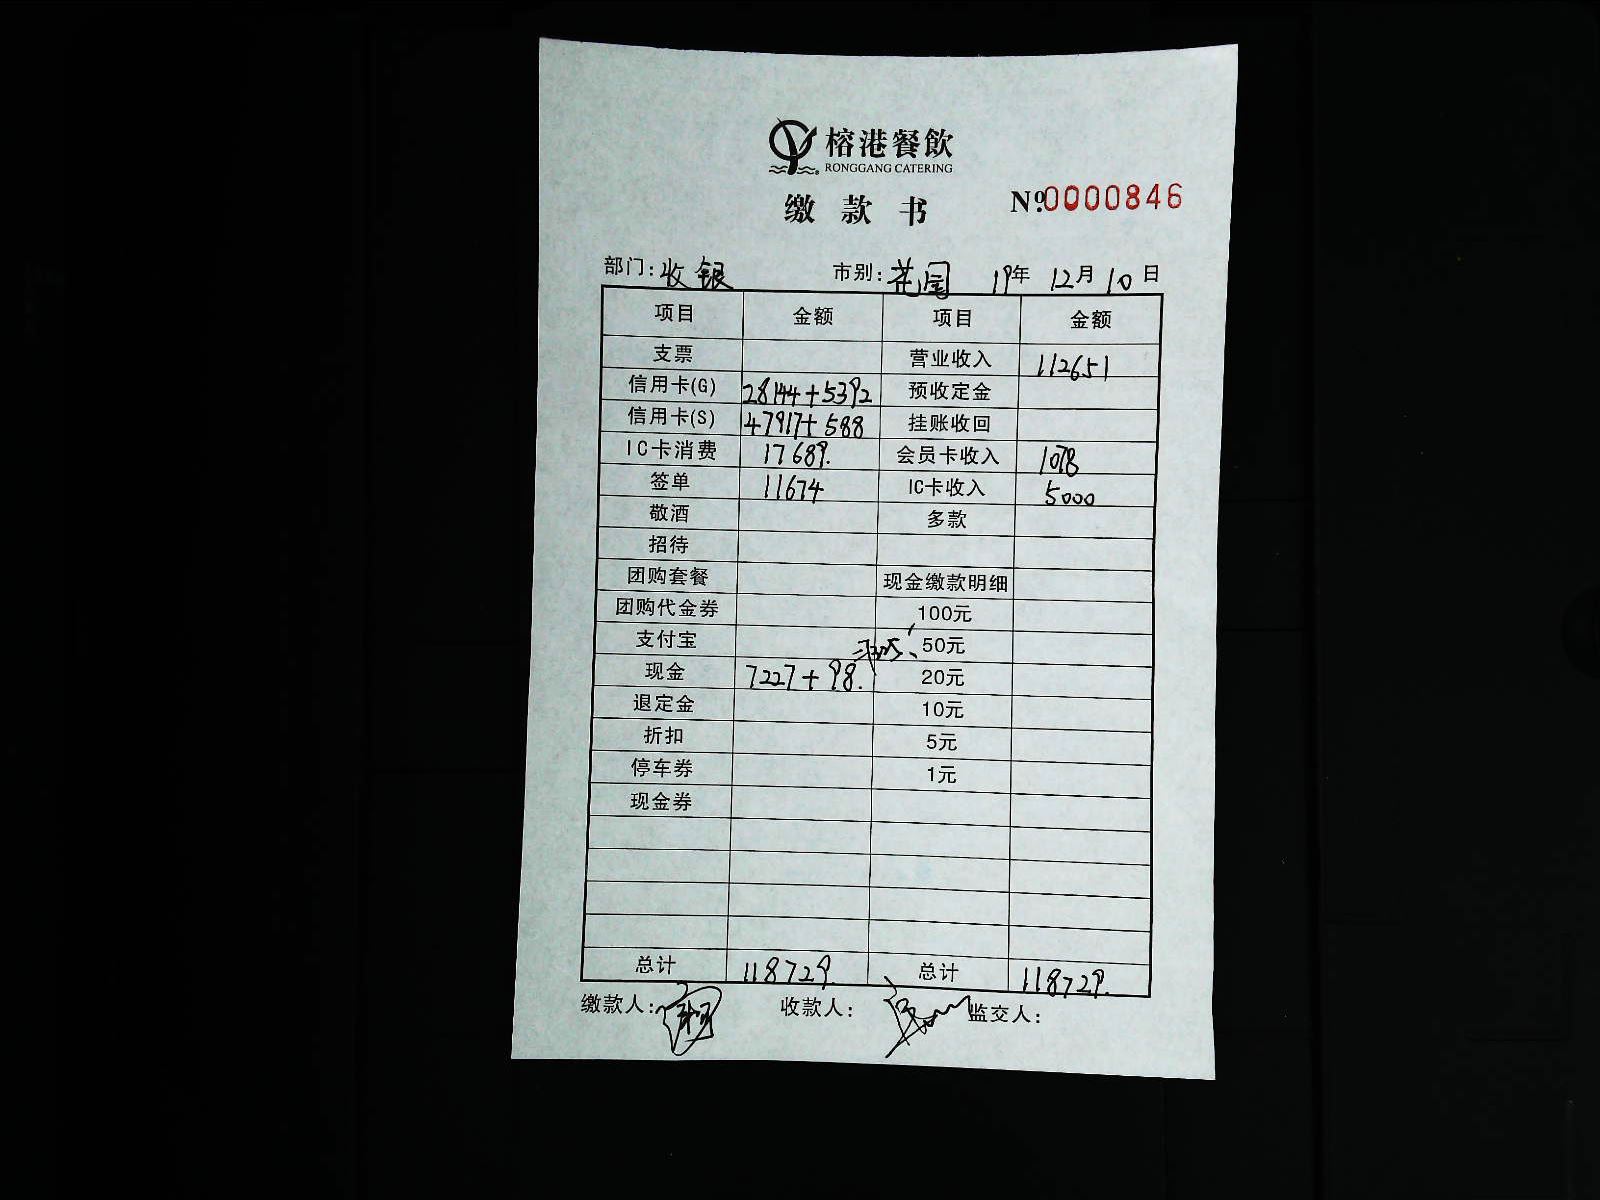 榕港餐飲
RONGGANG CATERING
缴款书 Nº0000846
部门:收银 市别:花园 19年 12月10日
项目 金额 项目 金额
支票 营业收入 112651
信用卡(G) 28144+5392 预收定金
信用卡(S) 47917+588 挂账收回
IC卡消费 17689. 会员卡收入 1078
签单 11674 IC卡收入 5000
敬酒 多款
招待
团购套餐 现金缴款明细
团购代金券 100元
支付宝 =7325. 50元
现金 7227+98. 20元
退定金 10元
折扣 5元
停车券 1元
现金券
总计 118729. 总计 118729.
缴款人: 收款人: 监交人: